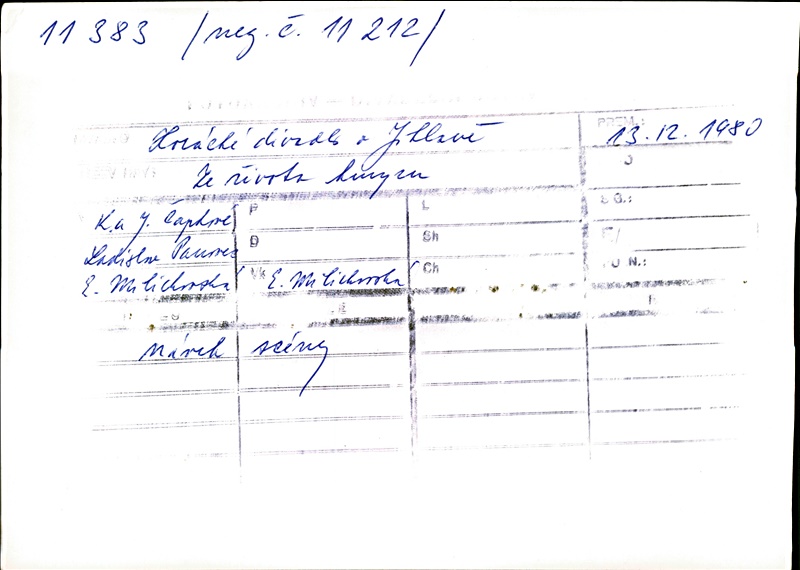 11 383 /neg. č. 11 212/
Horácké divadlo v Jihlavě
PREM.:
13. 12. 1980
Ze života hmyzu
K. a J. Čapkové
P
L
Ladislav Panovec
D
Sh
E. Milichovská
Vk
E. Milichovská
Ch
návrh scény